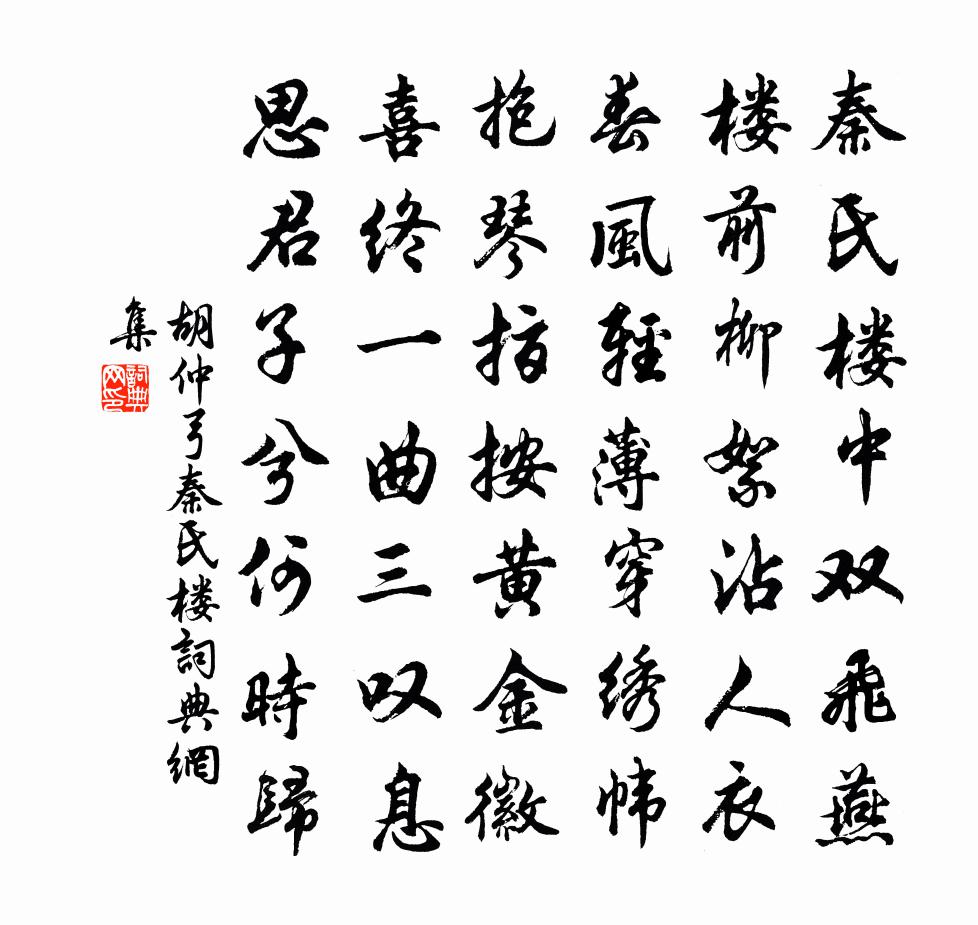 秦氏楼中双飛燕
楼前柳絮沾人衣
春風輕薄穿绣帏
抱琴指按黄金徽
喜终一曲三叹息
思君子兮何時歸
胡仲弓秦氏楼詞典網
集
詞典
网印